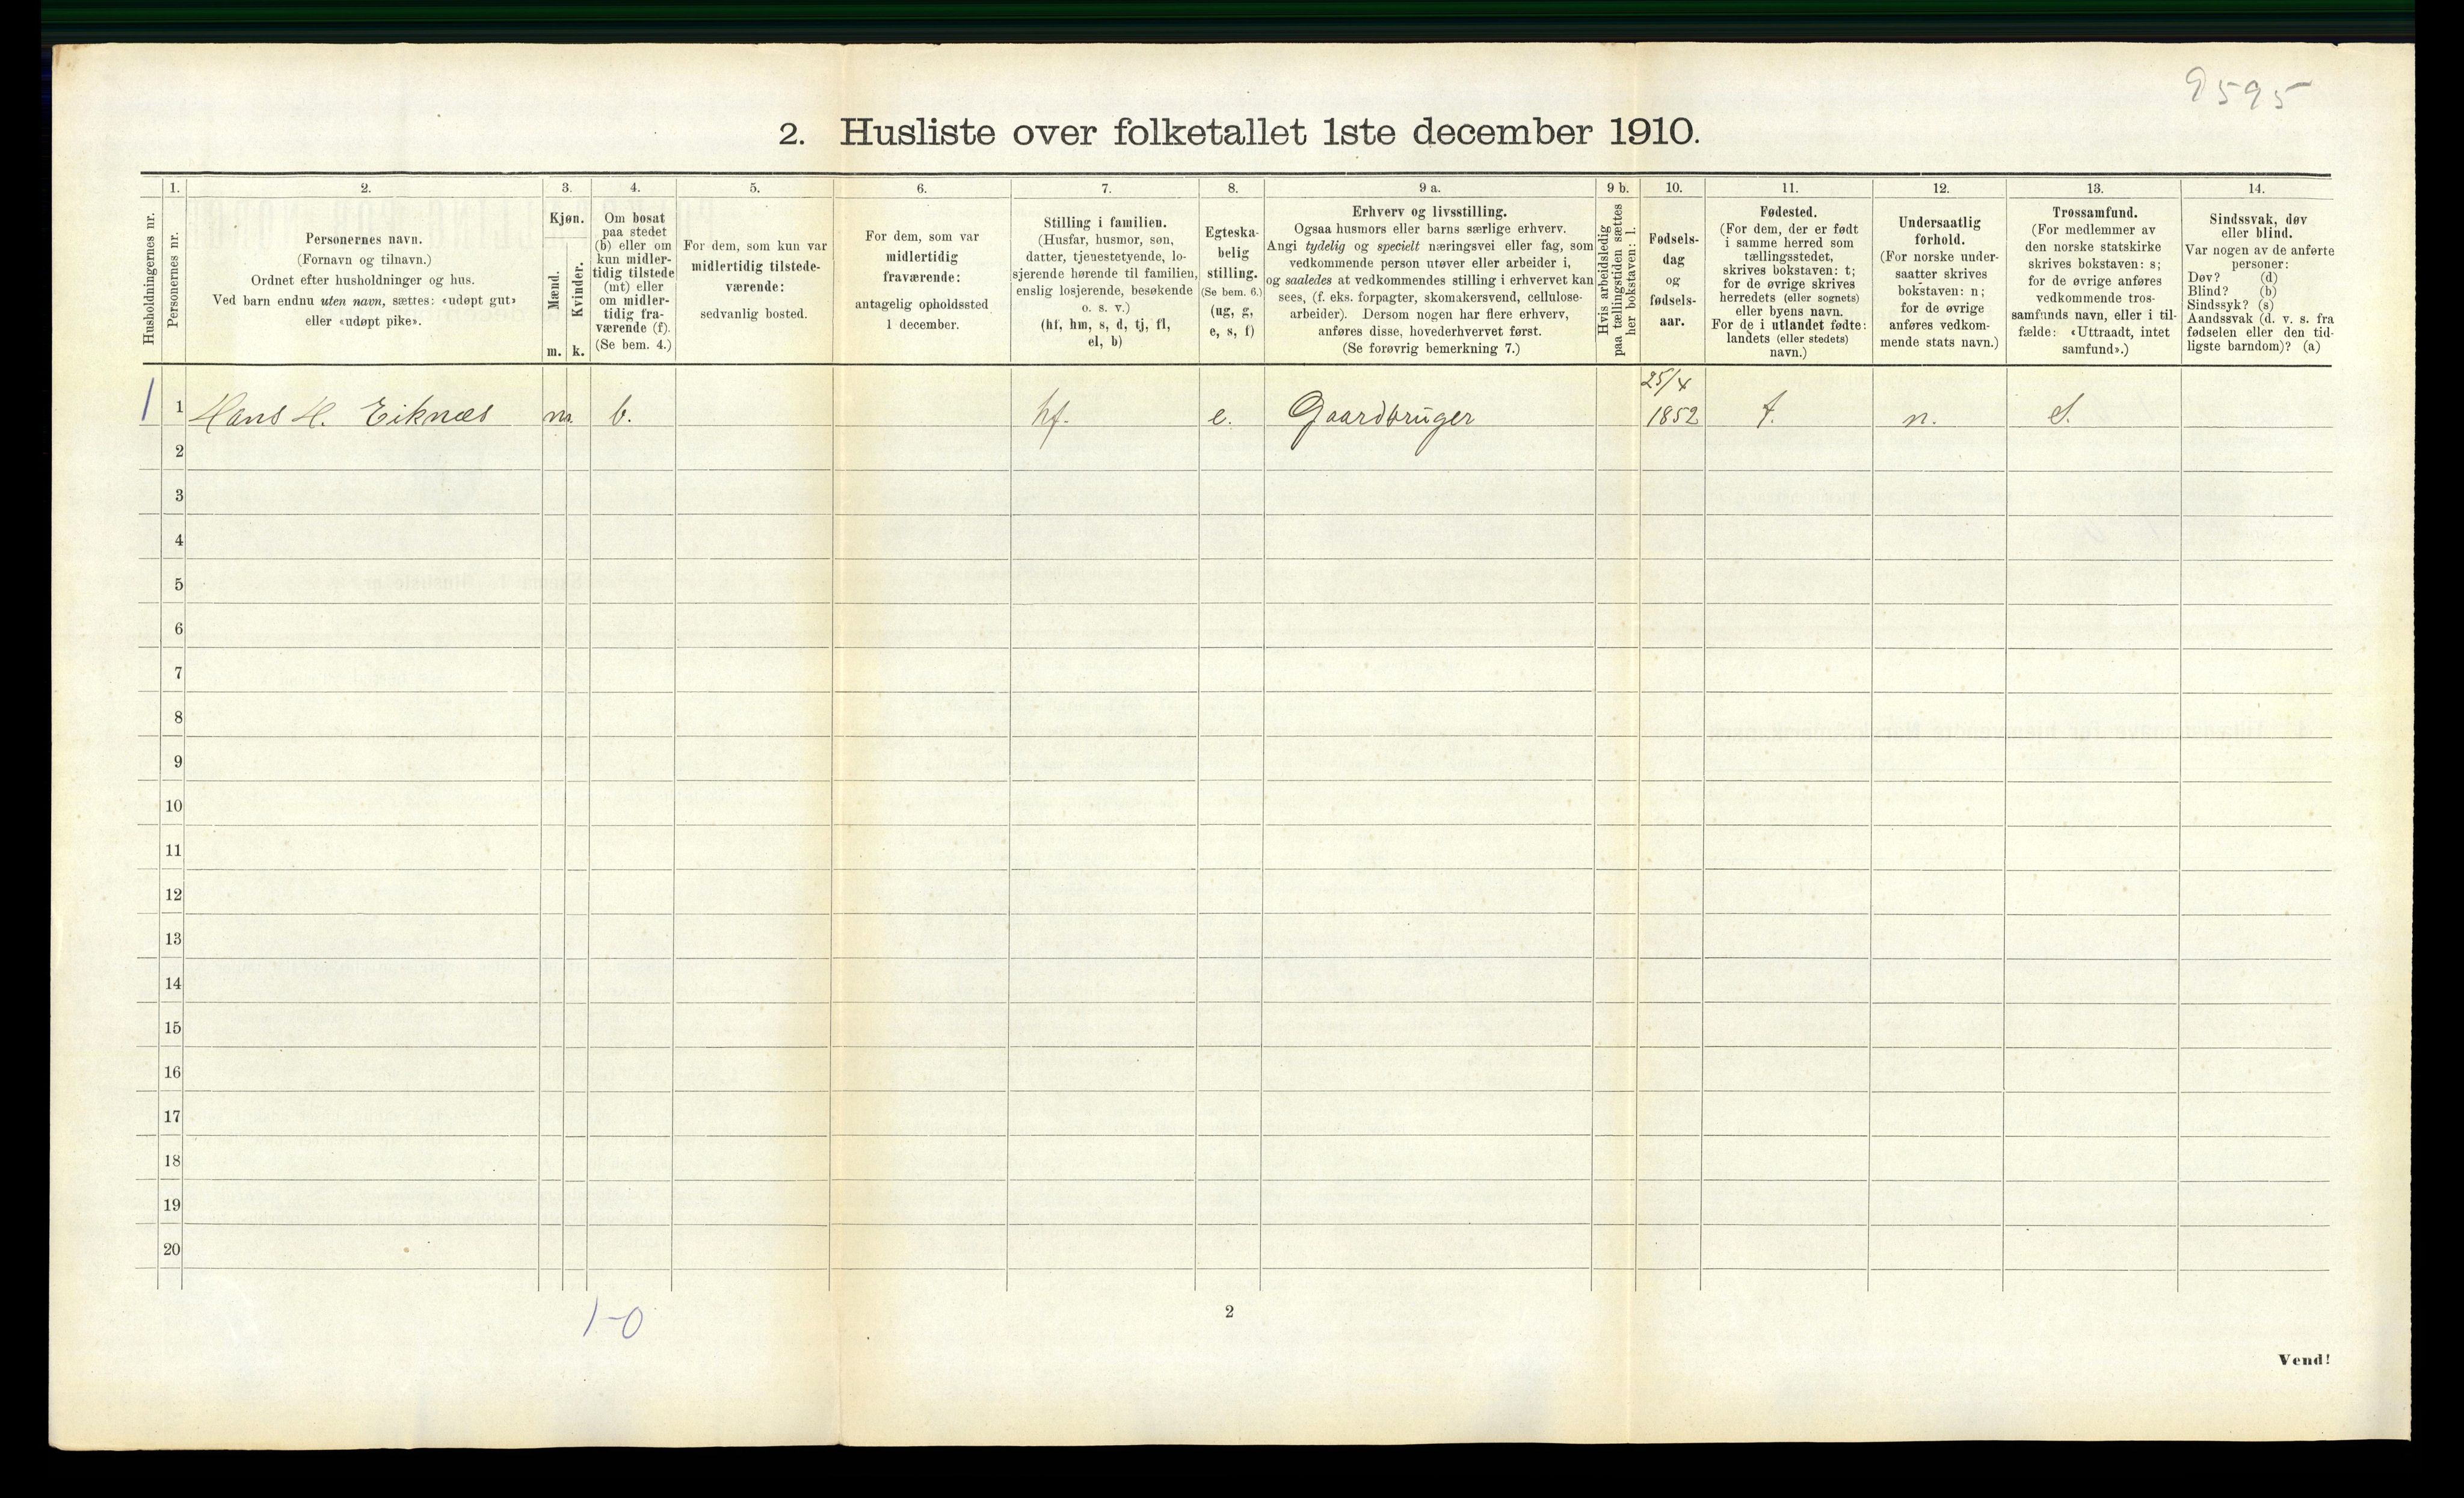 9595
2. Husliste over folketallet 1ste december 1910.
Husholdningernes nr.
1.
Personernes nr.
2.
Personernes navn.
(Fornavn og tilnavn.)
Ordnet efter husholdninger og hus.
Ved barn endnu uten navn, sættes: «udøpt gut»
eller «udøpt pike».
3.
Kjøn.
Mænd.
Kvinder.
m. k.
4.
Om bosat
paa stedet
(b) eller om
kun midler-
tidig tilstede
(mt) eller
om midler-
tidig fra-
værende (f).
(Se bem. 4.)
5.
For dem, som kun var
midlertidig tilstede-
værende:
sedvanlig bosted.
6.
For dem, som var
midlertidig
fraværende:
antagelig opholdssted
1 december.
7.
Stilling i familien.
(Husfar, husmor, søn,
datter, tjenestetyende, lo-
sjerende hørende til familien,
enslig losjerende, besøkende
o. s. v.)
(hf, hm, s, d, tj, fl,
el, b)
8.
Egteska-
belig
stilling.
(Se bem. 6.)
(ug, g,
e, s, f)
9 a.
Erhverv og livsstilling.
Ogsaa husmors eller barns særlige erhverv.
Angi tydelig og specielt næringsvei eller fag, som
vedkommende person utøver eller arbeider i,
og saaledes at vedkommendes stilling i erhvervet kan
sees, (f. eks. forpagter, skomakersvend, cellulose-
arbeider). Dersom nogen har flere erhverv,
anføres disse, hovederhvervet først.
(Se forøvrig bemerkning 7.)
9 b.
Hvis arbeidsledig
paa tællingstiden sættes
her bokstaven: l.
10.
Fødsels-
dag
og
fødsels-
aar.
11.
Fødested.
(For dem, der er født
i samme herred som
tællingsstedet,
skrives bokstaven: t;
for de øvrige skrives
herredets (eller sognets)
eller byens navn.
For de i utlandet fødte:
landets (eller stedets)
navn.)
12.
Undersaatlig
forhold.
(For norske under-
saatter skrives
bokstaven: n;
for de øvrige
anføres vedkom-
mende stats navn.)
13.
Trossamfund.
(For medlemmer av
den norske statskirke
skrives bokstaven: s;
for de øvrige anføres
vedkommende tros-
samfunds navn, eller i til-
fælde: «Uttraadt, intet
samfund».)
14.
Sindssvak, døv
eller blind.
Var nogen av de anførte
personer:
Døv? (d)
Blind? (b)
Sindssyk? (s)
Aandssvak (d. v. s. fra
fødselen eller den tid-
ligste barndom)? (a)
25/4
1 1 Hans H. Eiknæs m. b. hf. e. Gaardbruger 1852 t. n. S.
2
3
4
5
6
7
8
9
10
11
12
13
14
15
16
17
18
19
20
1-0
2
Vend!